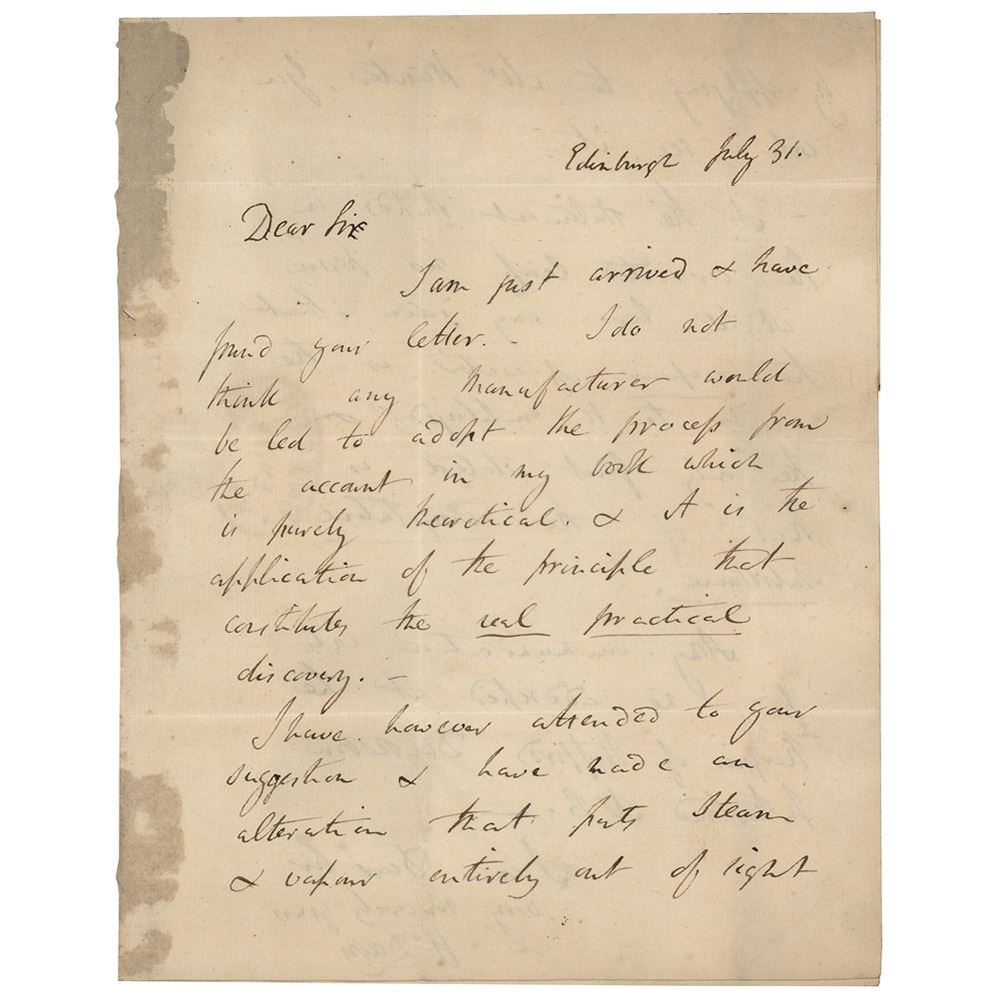 Edinburgh July 31.
Dear Sir
I am just arrived & have
found your letter. I do not
think any manufacturer would
be led to adopt the process from
the account in my book which
is purely theoretical. & it is the
application of the principle that
constitutes the real practical
discovery. –
I have however attended to your
suggestion & have made an
alteration that puts steam
& vapour entirely out of sight